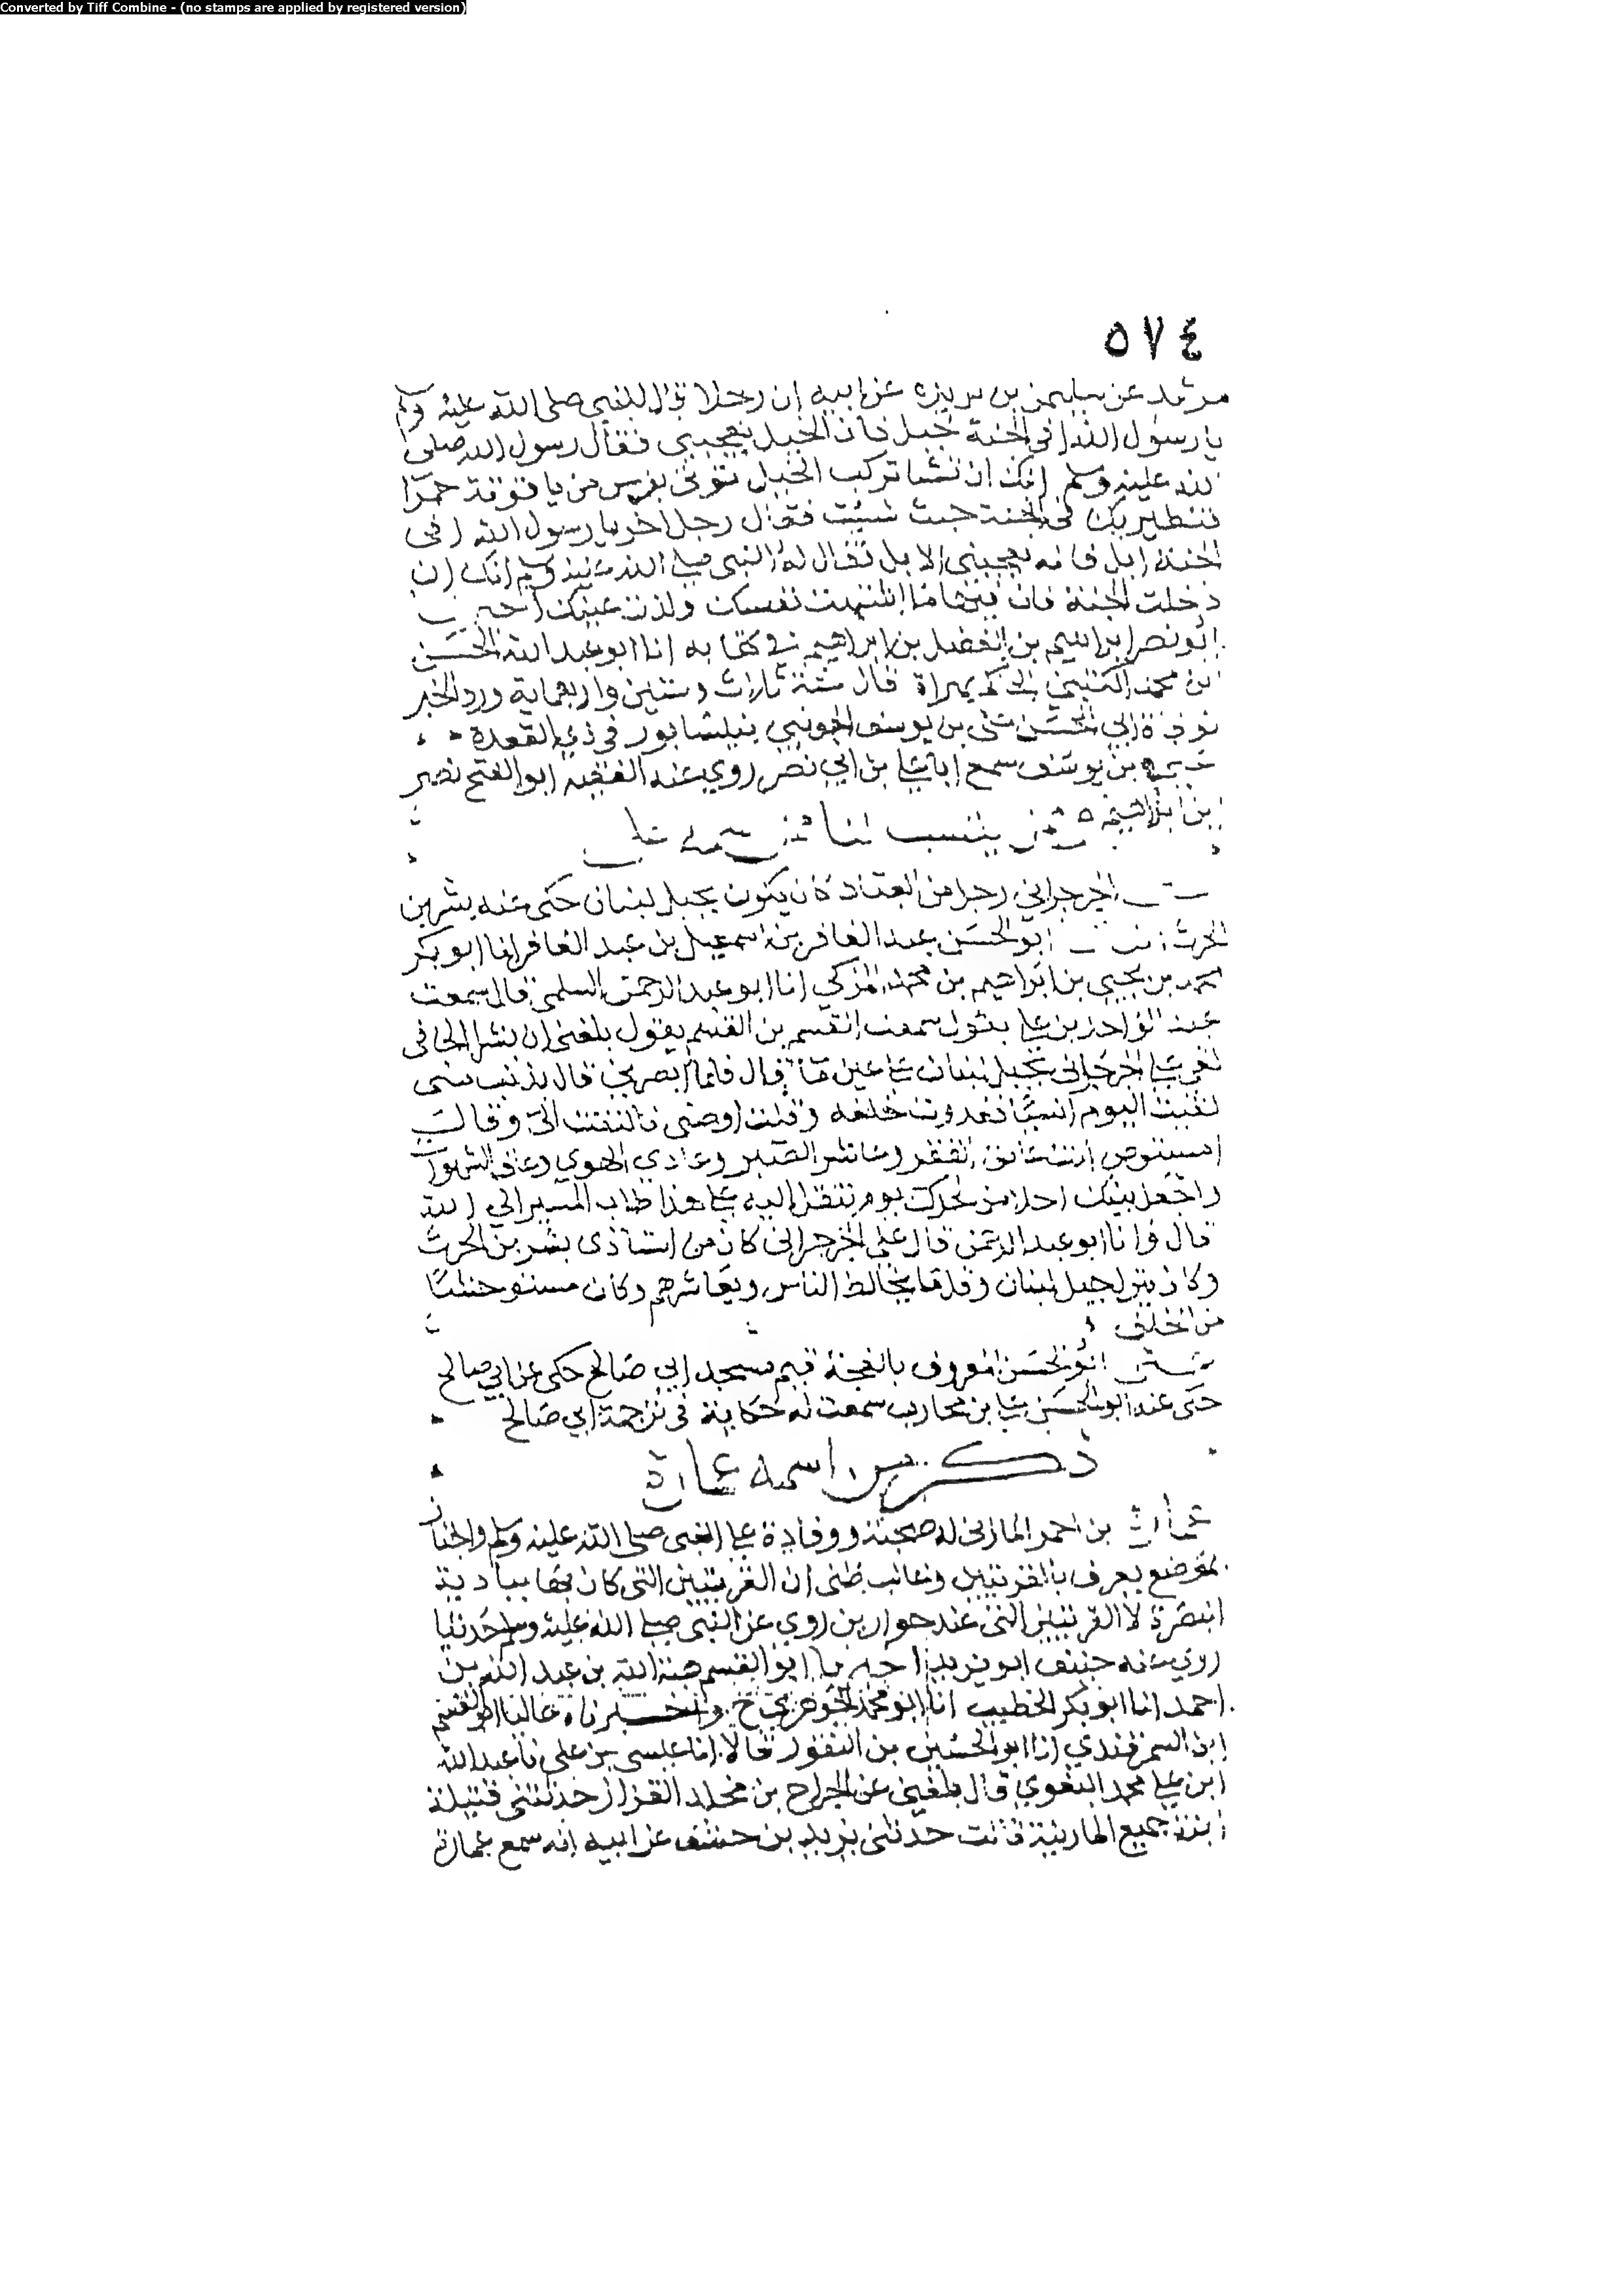 Converted by Tiff Combine - (no stamps are applied by registered version)
٥٧٤
مرثد عن سليمن بن بريده عن ابيه ان رجلا قال للنبي صلى الله عليه وسلم
يا رسول الله افي الجنة خيل فان الخيل يعجبني فقال رسول الله صلى
الله عليه وسلم انك ان تشا تركب الخيل تؤتى بفرس من ياقوتة حمرا
فتطير بك في الجنة حيث شئت فقال رجل اخر يا رسول الله افي
الجنة ابل فانه يعجبني الابل فقال له النبي صلى الله عليه وسلم انك ان
دخلت الجنة فان فيها ما اشتهت نفسك ولذت عينك
ابو نصر ابراهيم بن الفضل بن ابراهيم في كتابه انا ابو عبد الله الحسين
ابن محمد الكتبي الحاكم بهراة قال سنة ثلاث وستين واربعماية ورد الخبر
بوفاة ابي الحسن علي بن يوسف الجويني بنيسابور في ذي القعدة
بن يوسف سمع ابا علي بن ابي نصر روي عنه الفقيه ابو الفتح نصر
ابن ابراهيم
ينسب لنا ممن اسمه علي
الجرجراني رجل من العباد كان يكون بجبل لبنان حكى عنه بشر بن
الحرث ابو الحسن عبد الغافر بن اسمعيل بن عبد الغافر انا ابو بكر
محمد بن يحيى بن ابراهيم بن محمد المزكي انا ابو عبد الرحمن السلمي قال سمعت
عبد الواحد بن علي يقول سمعت القسم بن القسم يقول بلغني ان بشر الحافي
لقي علي الجرجراني بجبل لبنان على عين ما قال فلما ابصرني قال بذنب مني
لقيت اليوم انسيا فعدوت خلفه وقلت اوصني فالتفت الي وقال
امستوص انت عانق الفقر وعاشر الصبر وعادي الهوي وعاف الشهوات
واجعل بيتك احلا من لحدك يوم تنقل اليه على هذا طاب المسير الي الله
قال وانا ابو عبد الرحمن قال علي الجرجراني كان من استاذي بشر بن الحرث
وكان ينزل جبل لبنان وقل ما يخالط الناس ويعاشرهم وكان مستوحشا
من الخلق
ابو الحسن المعروف قيم مسجد ابي صالح حكى عن ابي صالح
حكى عنه ابو الحسن علي بن محارب سمعت له حكاية في ترجمة ابي صالح
ذكر من اسمه عمارة
بن احمر المازني له صحبة ووفادة على النبي صلى الله عليه وسلم
بموضع يعرف بالقريتين وغالب ظني ان القريتين التي كان بها ببادية
البصرة لا القريتين التي عند حوارين روي عن النبي صلى الله عليه وسلم حديثا
روي عنه ابو يزيد ابو القسم هبة الله بن عبد الله بن
احمد انا ابو بكر الخطيب انا ابو محمد الجوهري ح واخبرناه عاليا ابو القسم
ابن السمرقندي انا ابو الحسين بن النقور قالا انا عيسى بن علي نا عبد الله
ابن محمد البغوي قال بلغني عن الجراح بن مخلد القزاز حدثتني قتيلة
ابنة جميع المازنية قالت حدثني يزيد بن حنيف عن ابيه انه سمع عمارة